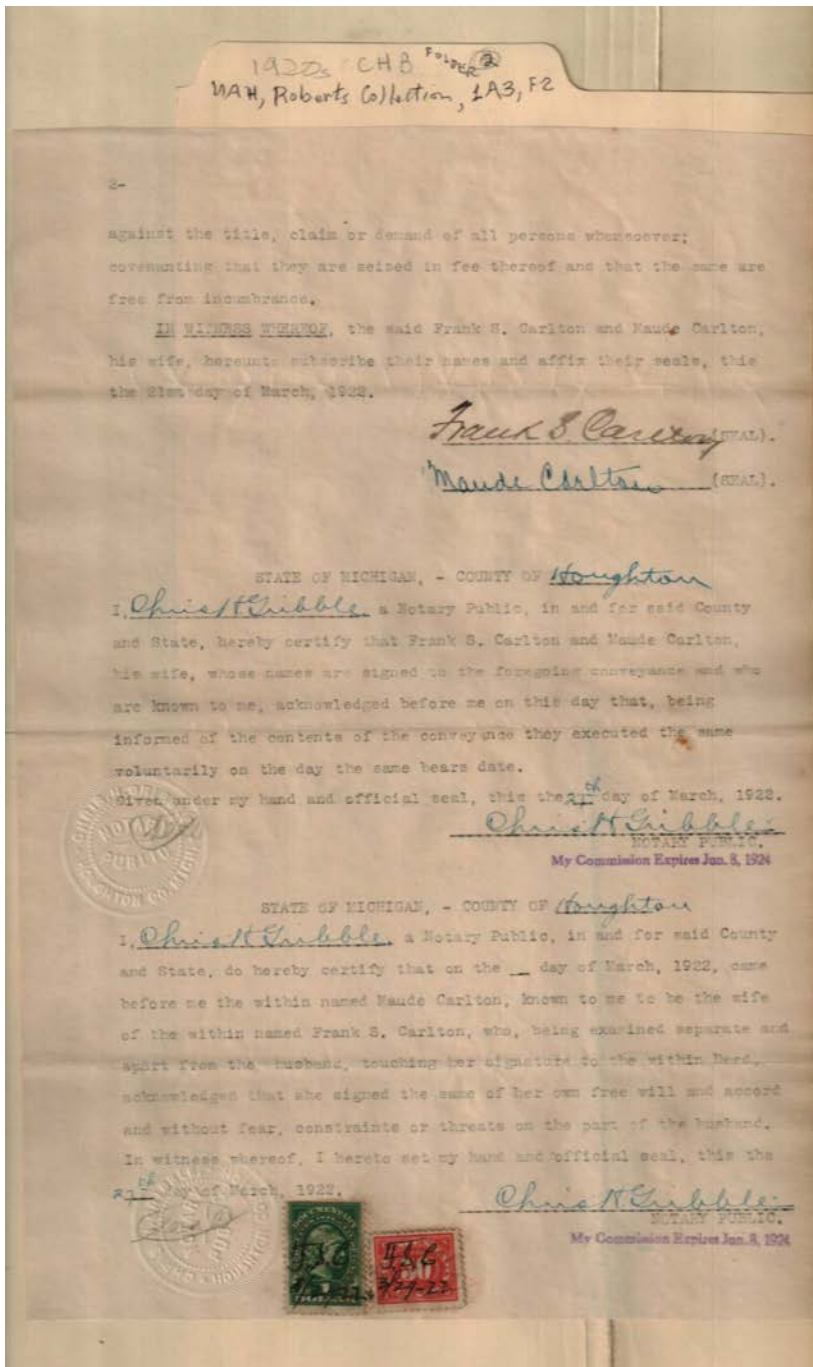 1920s CHB FOLDER 2
UAH, Roberts Collection, 1A3, F2
2-
against the title, claim or demand of all persons whomsoever;
covenanting that they are seized in fee thereof and that the same are
free from incumbrance.
IN WITNESS WHEREOF, the said Frank S. Carlton and Maude Carlton,
his wife, hereunto subscribe their names and affix their seals, this
the 21st day of March, 1922.
Frank S. Carlton (SEAL).
Maude Carlton (SEAL).
STATE OF MICHIGAN, - COUNTY OF Houghton
I, Chris H Gribble, a Notary Public, in and for said County
and State, hereby certify that Frank S. Carlton and Maude Carlton,
his wife, whose names are signed to the foregoing conveyance and who
are known to me, acknowledged before me on this day that, being
informed of the contents of the conveyance they executed the same
voluntarily on the day the same bears date.
Given under my hand and official seal, this the 27th day of March, 1922.
Chris H Gribble
NOTARY PUBLIC.
My Commission Expires Jan. 8, 1924
NOTARY
PUBLIC
STATE OF MICHIGAN, - COUNTY OF Houghton
I, Chris H Gribble, a Notary Public, in and for said County
and State, do hereby certify that on the __ day of March, 1922, came
before me the within named Maude Carlton, known to me to be the wife
of the within named Frank S. Carlton, who, being examined separate and
apart from the husband, touching her signature to the within Deed,
acknowledged that she signed the same of her own free will and accord
and without fear, constraints or threats on the part of the husband.
In witness whereof, I hereto set my hand and official seal, this the
27th day of March, 1922.
Chris H Gribble
NOTARY PUBLIC.
My Commission Expires Jan. 8, 1924
DOCUMENTARY
3/27-22